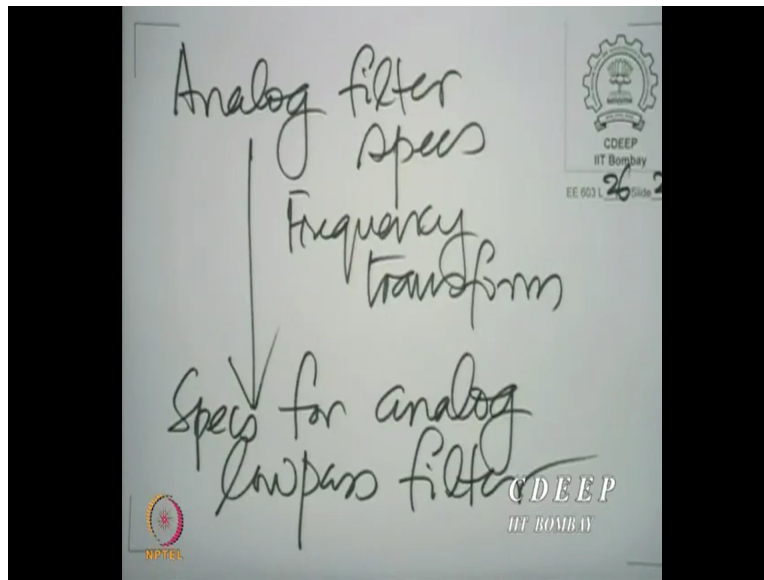 Analog filter
specs
Frequency
transform
Specs for analog
lowpass filter
CDEEP
IIT Bombay
EE 603 L 26 Slide 2
CDEEP
IIT BOMBAY
NPTEL